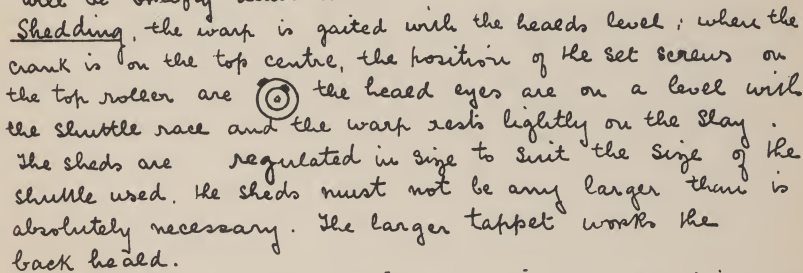 Shedding, the warp is gaited with the healds level; when the
crank is on the top centre, the position of the set screws on
the top roller are the heald eyes are on a level with
the shuttle race and the warp rests lightly on the slay.
The sheds are regulated in size to suit the size of the
shuttle used. the sheds must not be any larger than is
absolutely necessary. The larger tappet works the
back heald.